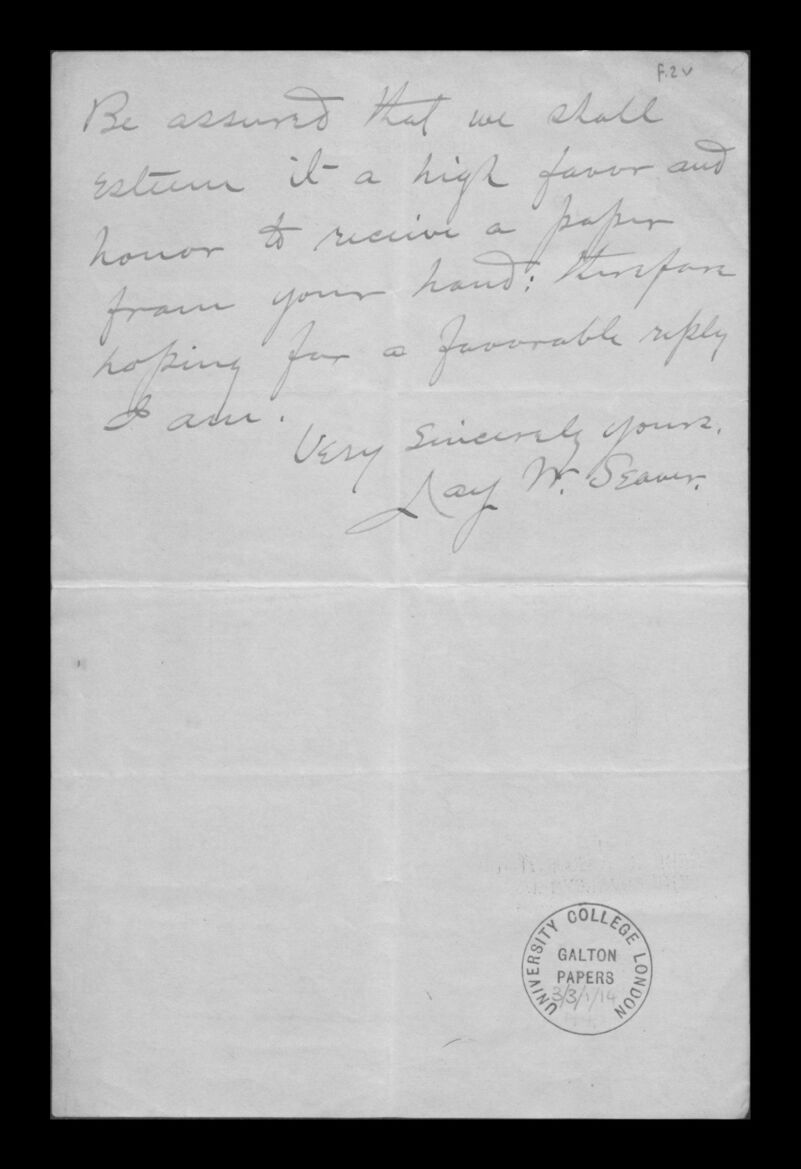 F.2v
Be assured that we shall
esteem it a high favor and
honor to receive a paper
from your hand: therefore
hoping for a favorable reply
I am.
Very Sincerely yours.
Jay W. Seaver.
UNIVERSITY COLLEGE LONDON
GALTON
PAPERS
3/3/1/14